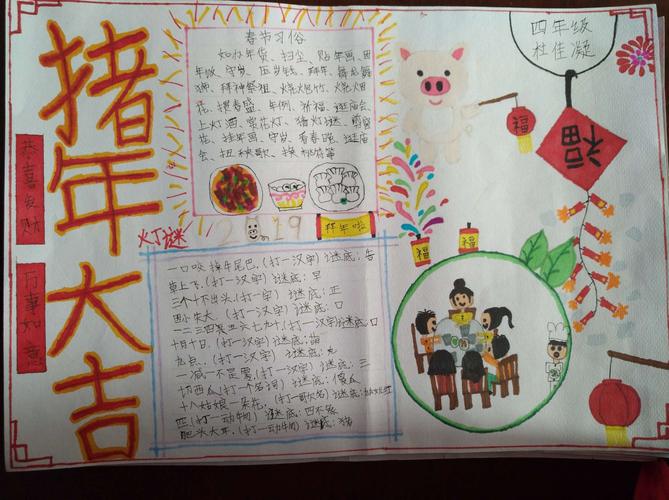 猪年大吉
恭喜发财
万事如意
春节习俗
如办年货、扫尘、贴年画、团
年饭、守岁、压岁钱、拜年、舞龙舞
狮、拜神祭祖、烧炮竹、烧烟
花、摆春盛、年例、祈福、逛庙会、
上灯酒、赏花灯、猜灯谜、剪窗
花、挂年画、守岁、看春晚、逛庙
会、扭秧歌、换桃符等
2019
拜年啦
四年级
杜佳凝
福
福
福
福
灯谜
一口咬掉牛尾巴,(打一汉字)谜底:告
草上飞,(打一汉字)谜底:早
三个十不出头,(打一字)谜底:正
(打一汉字)谜底:口
一二三四五六七九十,(打一汉字)谜底:口
十月十日,(打一汉字)谜底:萌
九点,(打一汉字)谜底:丸
一减一不是零,(打一汉字)谜底:三
切西瓜(打一个名词)谜底:傻瓜
十八姑娘一朵花,(打一歌名)谜底:
四(打一动物)谜底:四不象
肥头大耳,(打一动物)谜底:猪